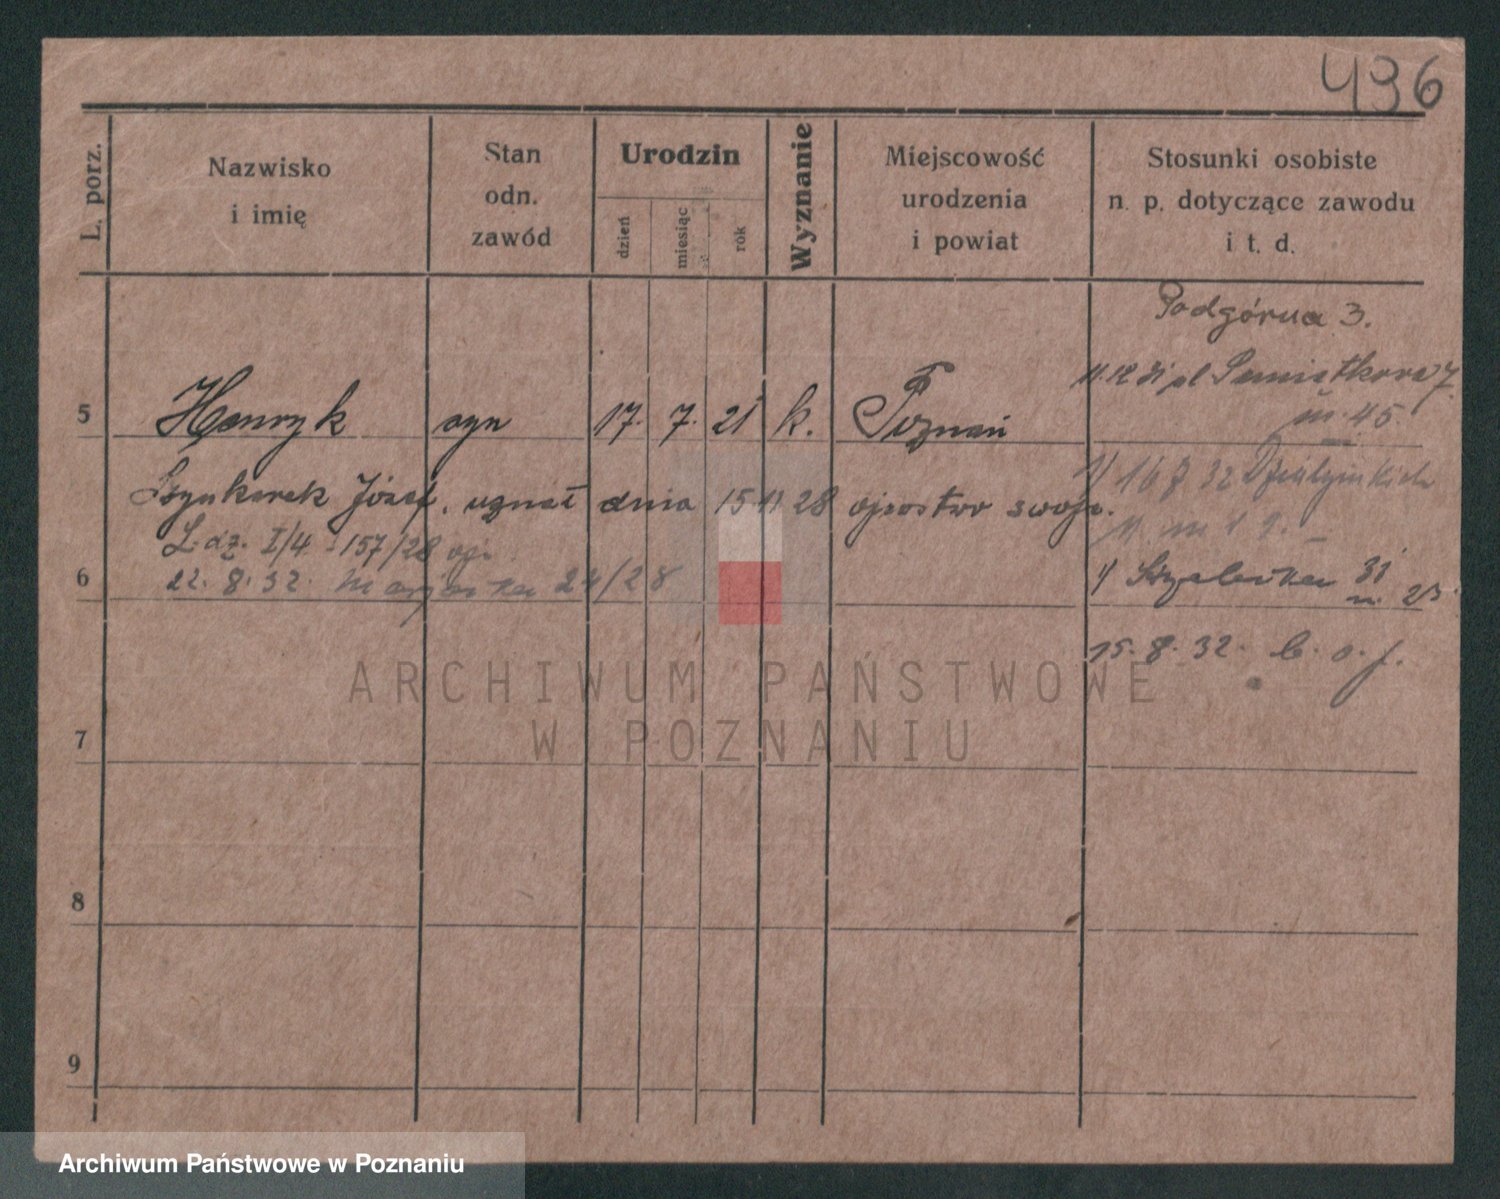 496
L. porz.
Nazwisko
i imię
Stan
odn.
zawód
Urodzin
dzień
miesiąc
rok
Wyznanie
Miejscowość
urodzenia
i powiat
Stosunki osobiste
n. p. dotyczące zawodu
i t. d.
Podgórna 3.
11.12 31 pl
7
m. 45.
5 Henryk syn 17. 7. 21 k. Poznań
16 7 32 Działyńskich
11. m 19. –
Józef, uznał dnia 15 11 28 ojcostwo swoje.
L. dz. I/4 - 157/28
6
22. 8. 32. 24/28
31
m. 23
15. 8. 32. b. o. j.
ARCHIWUM PAŃSTWOWE
W POZNANIU
7
8
9
Archiwum Państwowe w Poznaniu